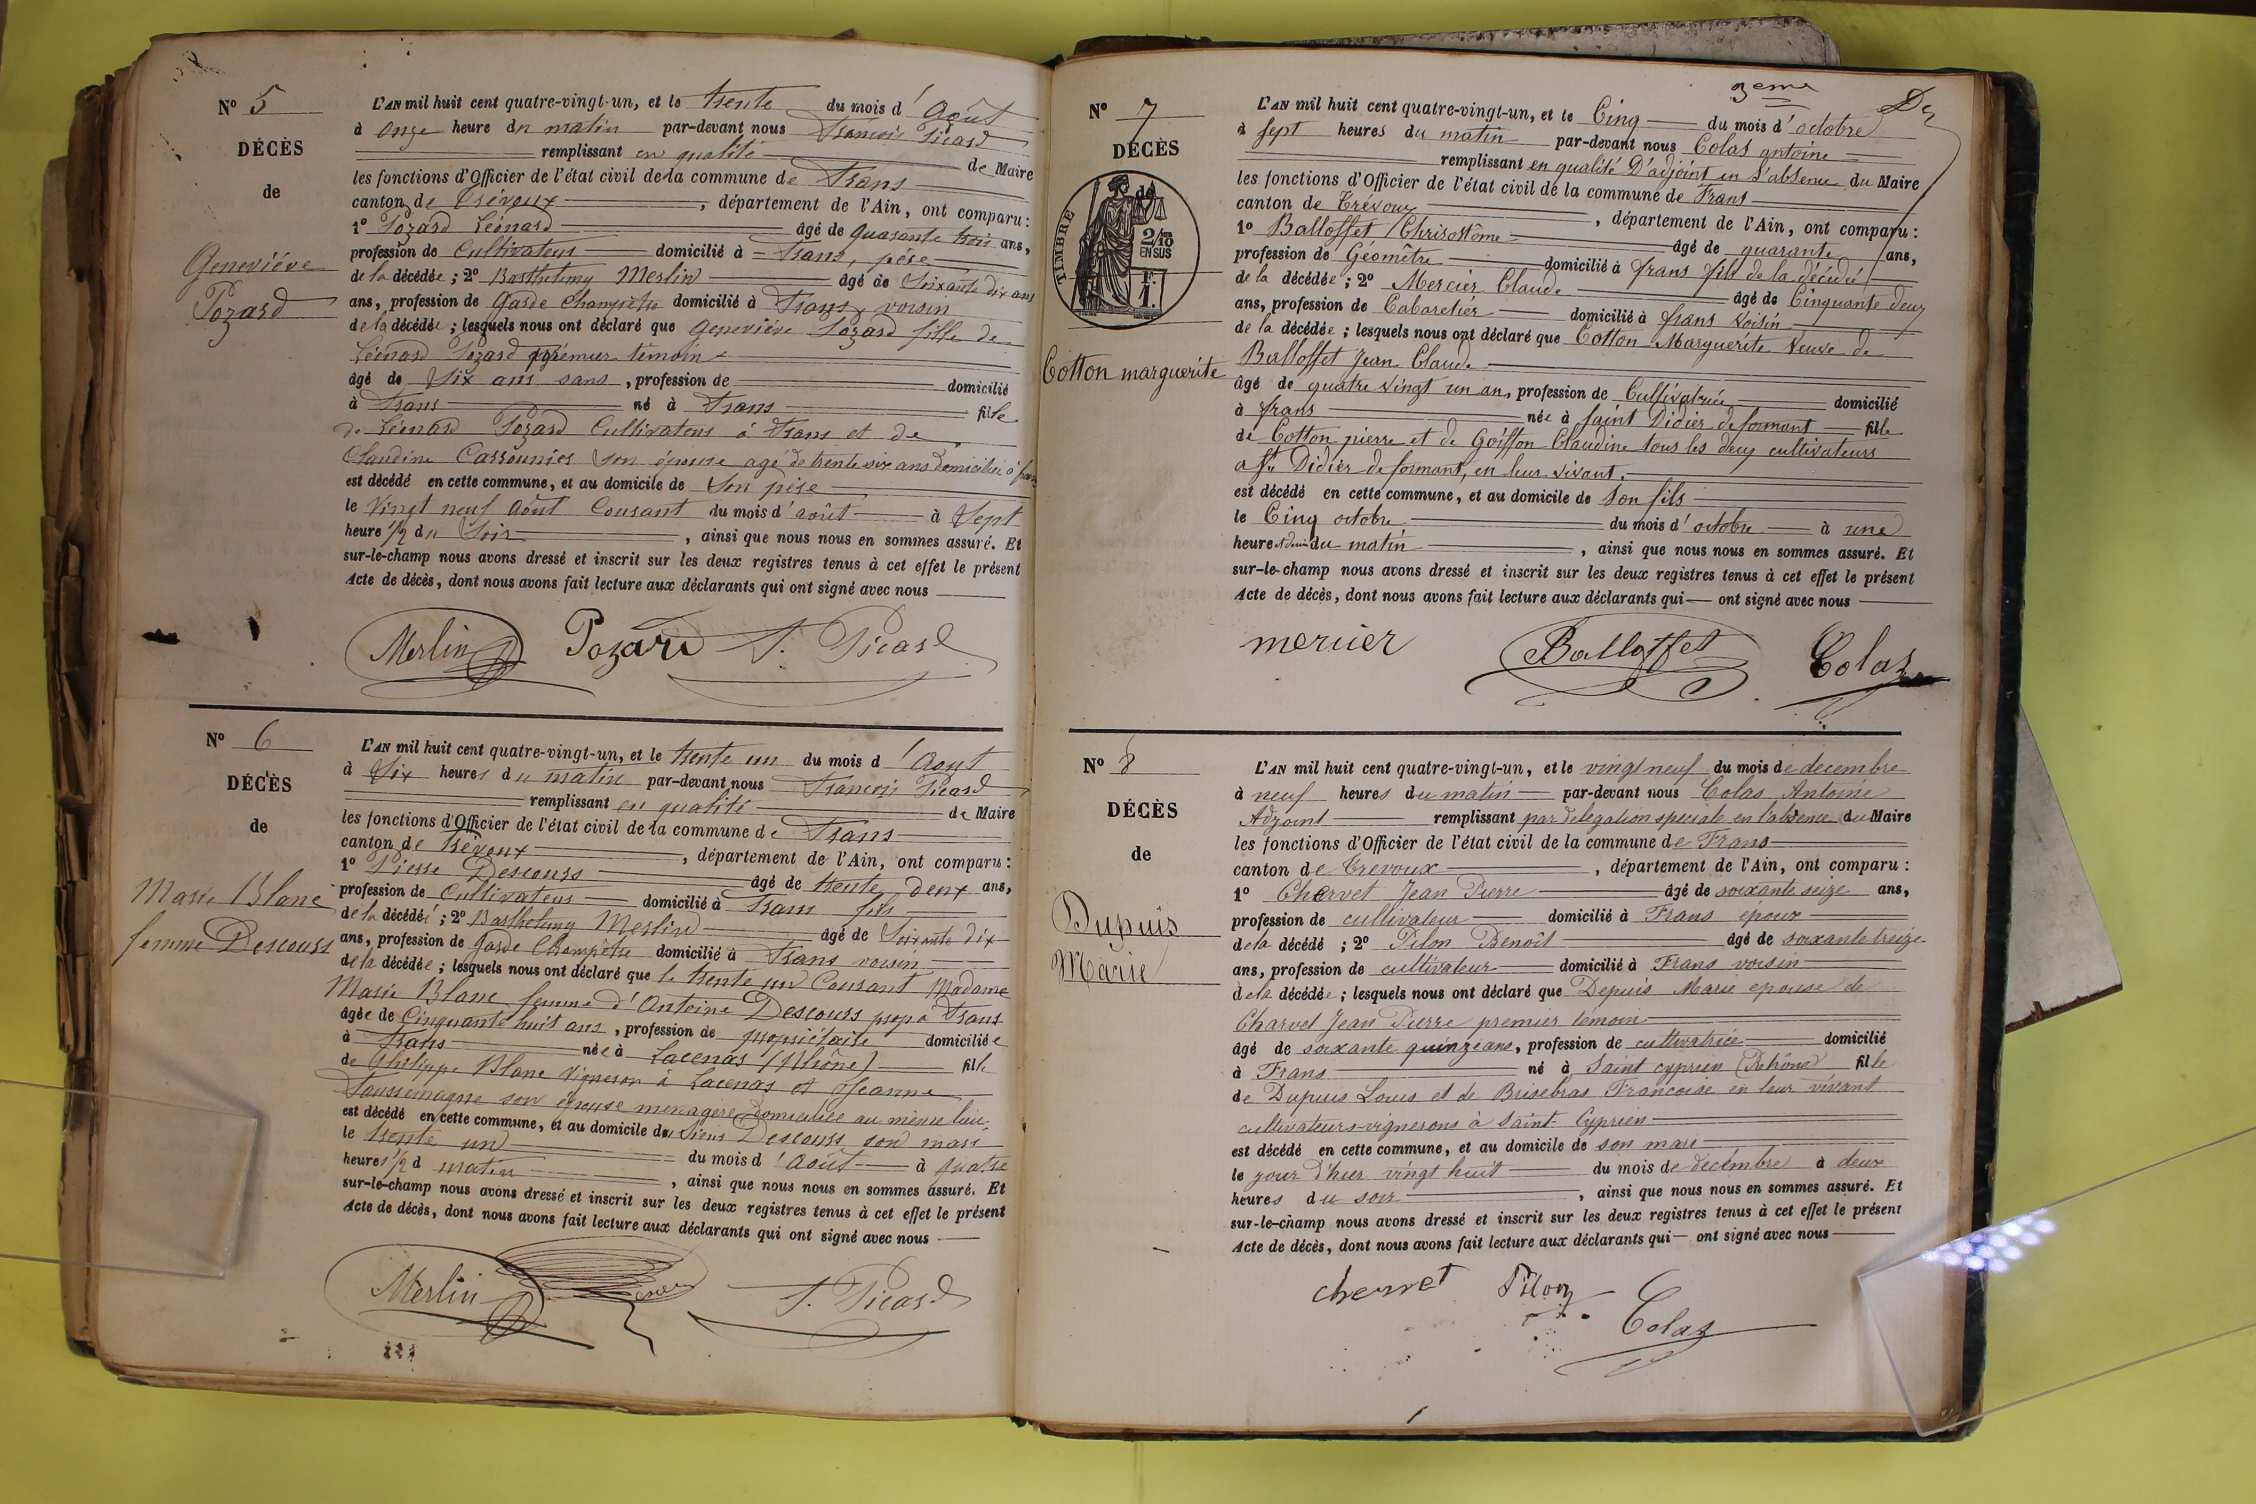 N° 5
DÉCÈS
de
Geneviève
Pozard
L'AN mil huit cent quatre-vingt-un, et le trente du mois d'Août
à onze heure du matin par-devant nous François Picard
remplissant en qualité de Maire
les fonctions d'Officier de l'état civil de la commune de Frans
canton de Trévoux, département de l'Ain, ont comparu :
1° Pozard Léonard âgé de quarante trois ans,
profession de Cultivateur domicilié à Frans, père
de la décédée ; 2° Barthelemy Merlin âgé de Soixante dix ans
ans, profession de Garde Champêtre domicilié à Frans, voisin
de la décédée ; lesquels nous ont déclaré que Geneviève Pozard fille de
Léonard Pozard premier témoin
âgé de Six ans sans, profession de domicilié
à Frans né à Frans fille
de Léonard Pozard Cultivateur à Frans et de
Claudine Carrounier son épouse agé de trente six ans domicilié à frans
est décédé en cette commune, et au domicile de Son père
le Vingt neuf Août Courant du mois d'août à Sept
heure 1/2 du Soir, ainsi que nous nous en sommes assuré. Et
sur-le-champ nous avons dressé et inscrit sur les deux registres tenus à cet effet le présent
Acte de décès, dont nous avons fait lecture aux déclarants qui ont signé avec nous
Merlin Pozard F. Picard
N° 6
DÉCÈS
de
Marie Blanc
femme Descours
L'AN mil huit cent quatre-vingt-un, et le trente un du mois d'Aout
à Six heures du matin par-devant nous François Picard
remplissant en qualité de Maire
les fonctions d'Officier de l'état civil de la commune de Frans
canton de Trévoux, département de l'Ain, ont comparu :
1° Pierre Descours âgé de trente deux ans,
profession de Cultivateur domicilié à Frans fils
de la décédéé ; 2° Barthelemy Merlin âgé de Soixante dix
ans, profession de Garde Champêtre domicilié à Frans voisin
de la décédée ; lesquels nous ont déclaré que le trente un Courant Madame
Marie Blanc femme d'Antoine Descours prop à Frans
âgée de Cinquante huit ans, profession de propriétaire domiciliée
à Frans née à Lacenas (Rhône) fille
de Philippe Blanc Vigneron à Lacenas et Jeanne
son épouse menagère domiciliée au même lieu
est décédé en cette commune, et au domicile du Sieur Descours son mari
le trente un du mois d'Août à quatre
heures 1/2 d matin, ainsi que nous nous en sommes assuré. Et
sur-le-champ nous avons dressé et inscrit sur les deux registres tenus à cet effet le présent
Acte de décès, dont nous avons fait lecture aux déclarants qui ont signé avec nous
Merlin F. Picard
3eme
N° 7
DÉCÈS
de
TIMBRE
2/10 EN SUS
F. 1.
Cotton marguerite
L'AN mil huit cent quatre-vingt-un, et le Cinq du mois d'octobre
à Sept heures du matin par-devant nous Colas antoine
remplissant en qualité D'adjoint en l'absence du Maire
les fonctions d'Officier de l'état civil de la commune de Frans
canton de Trévoux, département de l'Ain, ont comparu :
1° Balloffet Chrisostôme âgé de quarante ans,
profession de Géomêtre domicilié à frans fils de la décédée
de la décédée ; 2° Mercier Claude âgé de Cinquante deux
ans, profession de Cabaretier domicilié à frans voisin
de la décédée ; lesquels nous ont déclaré que Cotton Marguerite Veuve de
Balloffet Jean Claude
âgé de quatre vingt un an, profession de Cultivatrice domicilié
à frans née à Saint Didier de formant fille
de Cotton pierre et de Goiffon Claudine tous les deux cultivateurs
a St Didier de formant, en leur vivant.
est décédé en cette commune, et au domicile de Son fils
le Cinq octobre du mois d'octobre à une
heure et demi du matin, ainsi que nous nous en sommes assuré. Et
sur-le-champ nous avons dressé et inscrit sur les deux registres tenus à cet effet le présent
Acte de décès, dont nous avons fait lecture aux déclarants qui ont signé avec nous
mercier Balloffet Colas
N° 8
DÉCÈS
de
Dupuis
Marie
L'AN mil huit cent quatre-vingt-un, et le vingt neuf du mois de decembre
à neuf heures du matin par-devant nous Colas Antoine
Adjoint remplissant par delegation speciale en l'absence du Maire
les fonctions d'Officier de l'état civil de la commune de Frans
canton de Trevoux, département de l'Ain, ont comparu :
1° Charvet Jean Pierre âgé de soixante seize ans,
profession de cultivateur domicilié à Frans époux
de la décédé ; 2° Pilon Benoît âgé de soixante treize
ans, profession de cultivateur domicilié à Frans voisin
de la décédée ; lesquels nous ont déclaré que Depuis Marie epouse de
Charvet Jean Pierre premier témoin
âgé de soixante quinze ans, profession de cultivatrice domicilié
à Frans né à Saint cyprien (Rhône) fille
de Dupuis Louis et de Brisebras Francoise en leur vivant
cultivateurs-vignerons à Saint-Cyprien
est décédé en cette commune, et au domicile de son mari
le jour d'hier vingt huit du mois de decémbre à deux
heures du soir, ainsi que nous nous en sommes assuré. Et
sur-le-champ nous avons dressé et inscrit sur les deux registres tenus à cet effet le présent
Acte de décès, dont nous avons fait lecture aux déclarants qui ont signé avec nous
chervet Pilon
Colas